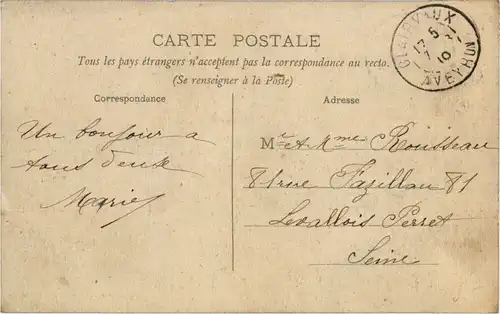 CARTE POSTALE
Tous les pays étrangers n'acceptent pas la correspondance au recto.
(Se renseigner à la Poste)
Correspondance
Adresse
Un bonjour a
tous deux
Marie
Mr et Mme Rousseau
81 rue Fazillau 81
Levallois Perret
Seine
CLAIRVAUX
AVEYRON